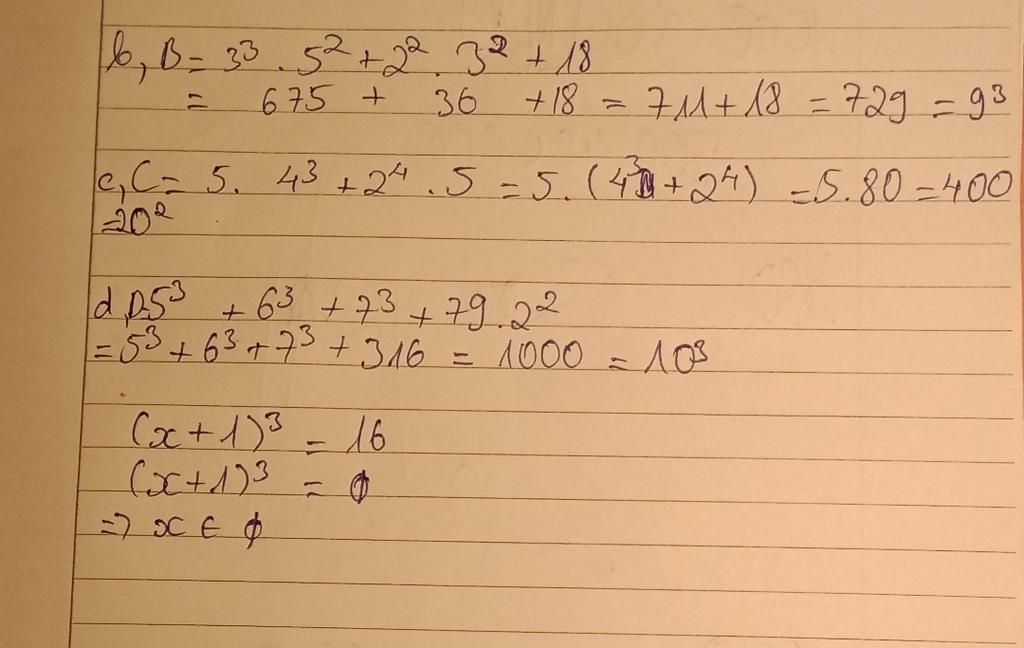 b, B = 3³ . 5² + 2² . 3² + 18
= 675 + 36 + 18 = 711 + 18 = 729 = 9³
c, C = 5 . 4³ + 2⁴ . 5 = 5 . (4³ + 2⁴) = 5 . 80 = 400
= 20²
d, D = 5³ + 6³ + 7³ + 79 . 2²
= 5³ + 6³ + 7³ + 316 = 1000 = 10³
(x + 1)³ = 16
(x + 1)³ = ϕ
=> x ∈ ϕ